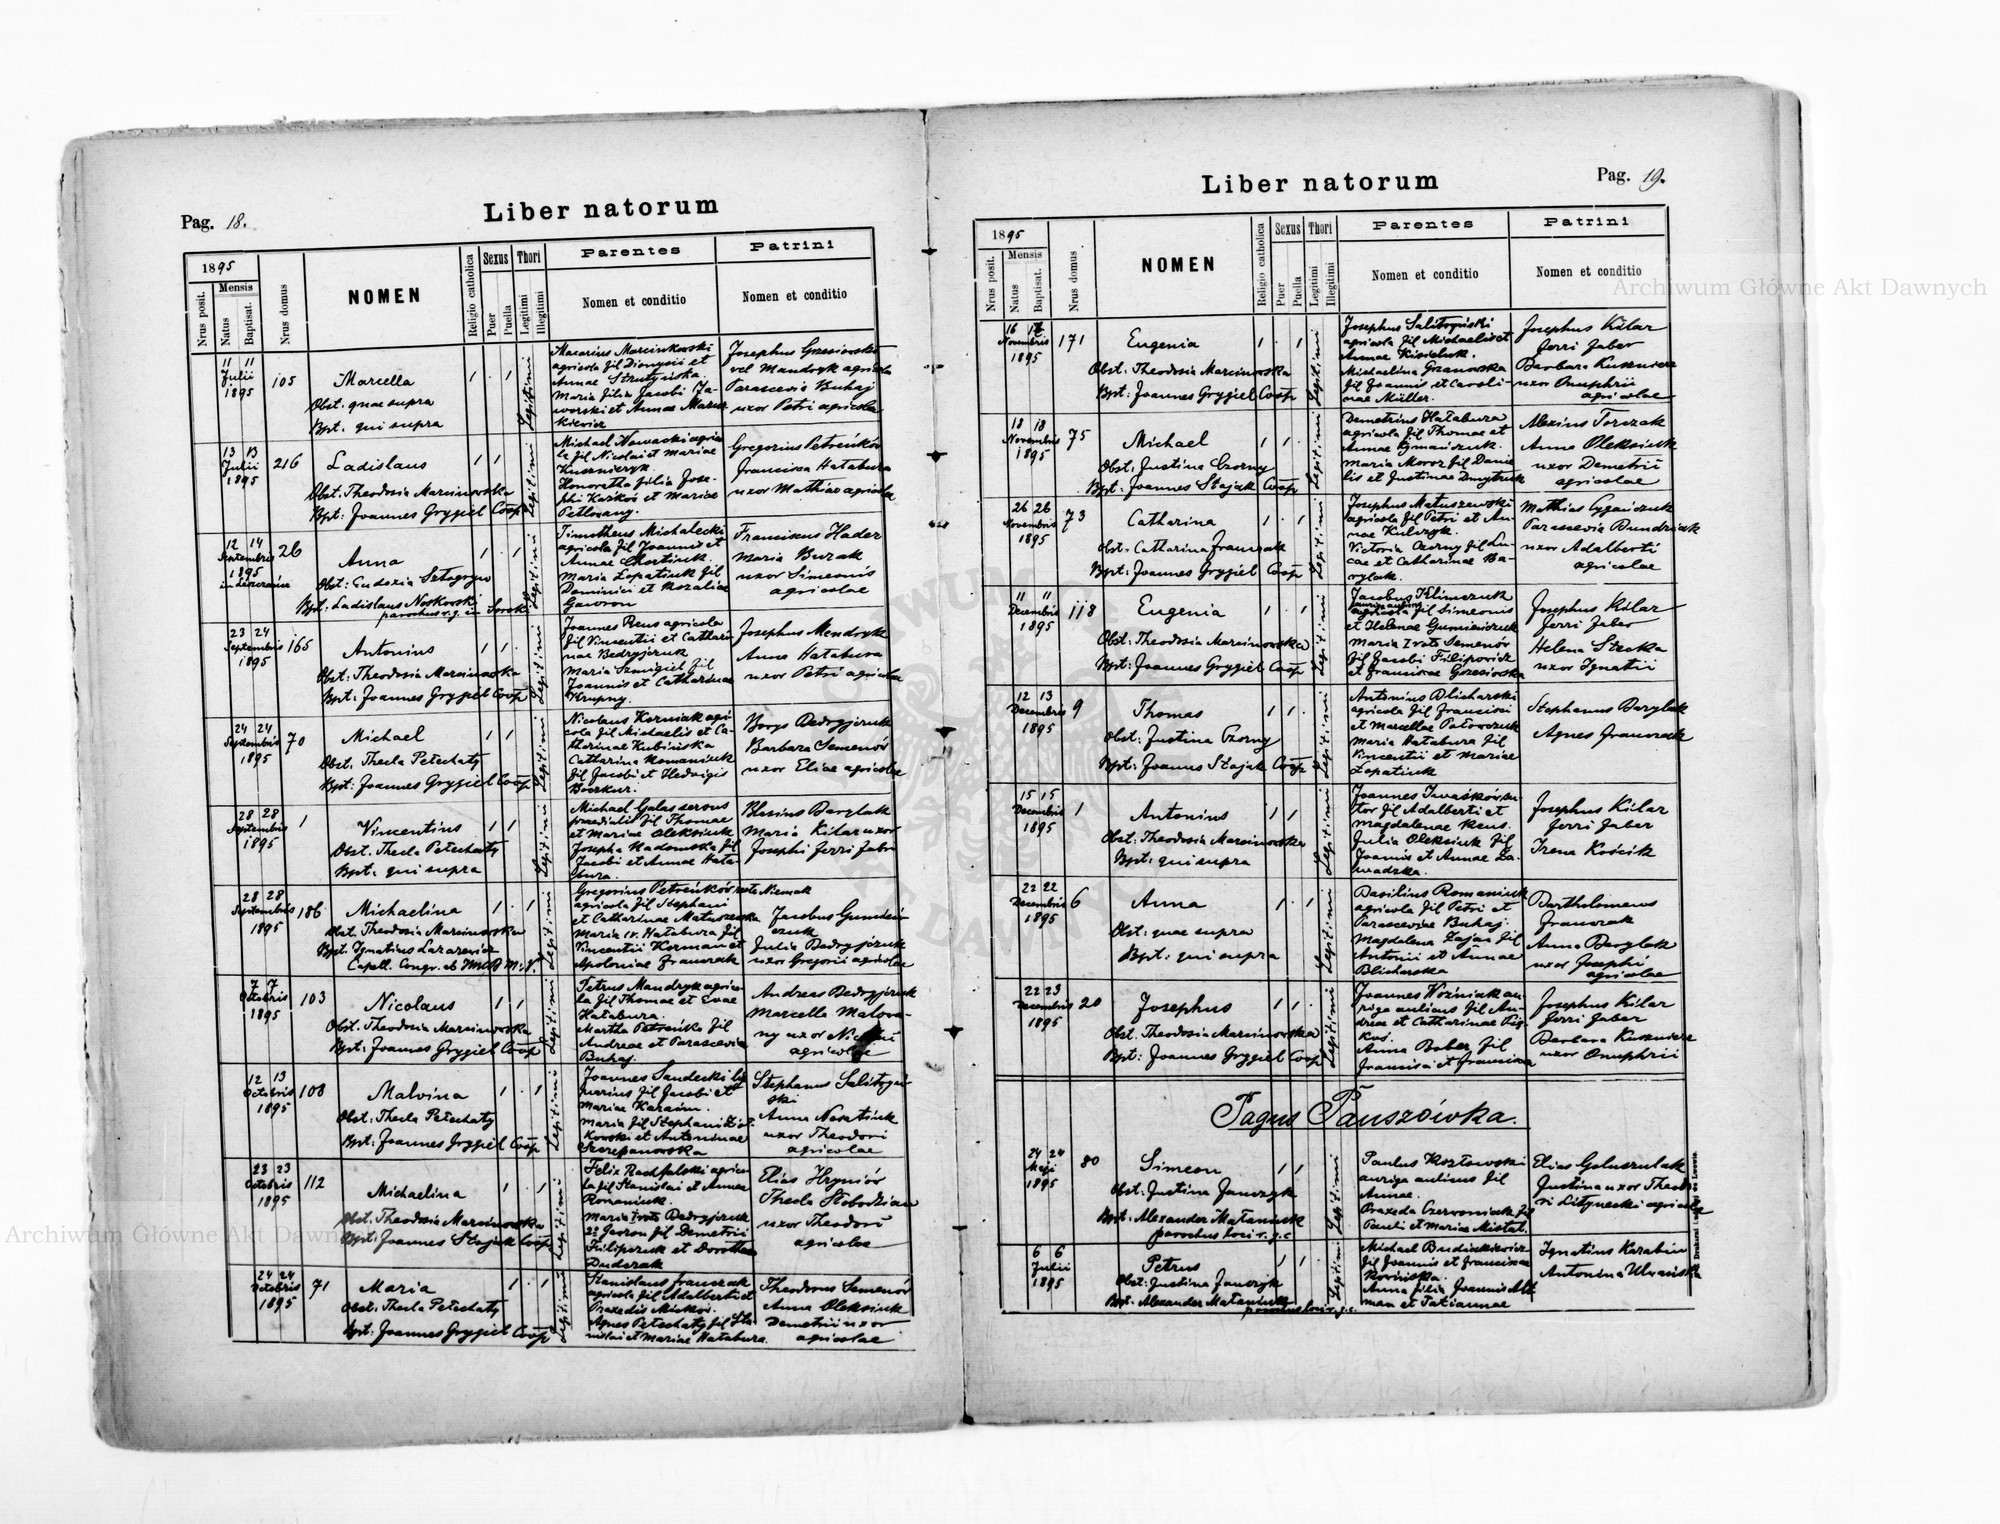 Pag. 18.
Liber natorum
1895
Nrus posit.
Mensis
Natus
Baptisat.
Nrus domus
NOMEN
Religio catholica
Sexus
Puer
Puella
Thori
Legitimi
Illegitimi
Parentes
Nomen et conditio
Patrini
Nomen et conditio
11 11
Julii
1895
105
Marcella
Obst. quae supra
Bpt. qui supra
Legitimi
Macarius Marcinkowski
agricola fil Dionysii et
Annae Strutyńska.
Maria filia Jacobi Ja-
worski et Annae Mazur
kiewicz
Josephus Gzesiowski
vel Mandryk agricola
Parascevia Buhaj
uxor Petri agricolae
13 13
Julii
1895
216
Ladislaus
Obst. Theodosia Marcinowska
Bpt: Joannes Grygiel Coop
Legitimi
Michael Nowacki agrico
la fil Nicolai et Mariae
Kusznieryk.
Honoratha filia Jose-
phi Kaźków et Mariae
Gregorius Petreńków
Francisca Hałabura
uxor Mathiae agricolae
12 14
Septembris
1895
26
Anna
Obst: Eudoxia
Bpt: Ladislaus Noskowski
parochus r. g. in Soroki
Legitimi
Timotheus Michalecki
agricola fil Joannis et
Annae Chortiuk.
Maria Łopatiuk fil
Dominici et Rozaliae
Gawron
Franciscus Hader
Maria Buzak
uxor Simeonis
agricolae
23 24
Septembris
1895
165
Antonius
Obst: Theodosia Marcinowska
Bpt: Joannes Grygiel Coop
Legitimi
Joannes Reus agricola
fil Vincentii et Cathari-
nae Bedryjczuk
Maria Szmigiel fil
Joannis et Catharinae
Krupny.
Josephus Mendryk
Anna Hałabura
uxor Petri agricolae
24 24
Septembris
1895
70
Michael
Obst. Thecla Petechaty
Bpt: Joannes Grygiel Coop
Legitimi
Nicolaus Korniak agri-
cola fil Michaelis et Ca-
tharinae Kubińska
Catharina Romaniuk
fil Jacobi et Hedvigis
Boczkur.
Borys Bedryjczuk
Barbara Semenów
uxor Eliae agricolae
28 28
Septembris
1895
1
Vincentius
Obst. Thecla Petechaty
Bpt: qui supra
Legitimi
Michael Galas servus
praedialis fil Thomae
et Mariae Oleksiuk
Josepha Hadomska fil
Jacobi et Annae Hała-
bura.
Blasius Barylak
Maria Kilar uxor
Josephi ferri fabri
28 28
Septembris
1895
186
Michaelina
Obst. Theodosia Marcinowska
Bpt. Ignatius Lazarewicz
Capell. Congr. ab
Legitimi
Gregorius Petreńków vote Niemak
agricola fil Stephani
et Catharinae Matuszewska
Maria iv. Hałabura fil
Vincentii Korman et
Apoloniae Franczak
Jacobus Gumieni-
czuk
Julia Bedryjczuk
uxor Gregorii agricolae
7 7
Octobris
1895
103
Nicolaus
Obst. Theodosia Marcinowska
Bpt: Joannes Grygiel Coop
Legitimi
Petrus Mandryk agrico-
la fil Thomae et Evae
Hałabura.
Martha Petreńko fil
Andreae et Parascevia
Buhaj.
Andreas Bedryjczuk
Marcella Malowa-
ny uxor
agricolae
12 13
Octobris
1895
108
Malvina
Obst: Thecla Petechaty
Bpt: Joannes Grygiel Coop
Legitimi
Joannes Sandecki
fil Jacobi et
Mariae Karaim.
Maria fil Stephani
kowski et Antoninae
Szczepanowska
Stephanus Salitryń-
ski
Anna
uxor Theodori
agricolae
23 23
Octobris
1895
112
Michaelina
Obst. Theodosia Marcinowska
Bpt: Joannes Stojak Coop
Legitimi
Felix Rachfalski agrico-
la fil Stanislai et Annae
Romaniuk.
Maria 1 voto Bedryjczuk
2o Gawron fil Demetrii
Filipczuk et Dorothea
Dudczak
Elias Hryniów
Thecla Słobodzian
uxor Theodori
agricolae
24 24
Octobris
1895
71
Maria
Obst: Thecla Petechaty
Bpt: Joannes Grygiel Coop
Legitimi
Stanislaus Franczak
agricola fil Adalberti et
Praxedis Mickoś.
Agnes Petechaty fil Sta-
nislai et Mariae Hałabura.
Theodorus Semenów
Anna Oleksiuk
Demetrii uxor
agricolae
Liber natorum
Pag. 19.
1895
Nrus posit.
Mensis
Natus
Baptisat.
Nrus domus
NOMEN
Religio catholica
Sexus
Puer
Puella
Thori
Legitimi
Illegitimi
Parentes
Nomen et conditio
Patrini
Nomen et conditio
16 17
Novembris
1895
171
Eugenia
Obst: Theodosia Marcinowska
Bpt: Joannes Grygiel Coop
Legitimi
Josephus Salitryński
agricola fil Michaelis et
Annae Kisieluk.
Michaelina Granowska
fil Joannis et Caroli-
nae Müller.
Josephus Kilar
ferri faber
Barbara Kusznierz
uxor Onuphrii
agricolae
18 18
Novembris
1895
75
Michael
Obst: Justina Czorny
Bpt: Joannes Stojak Coop
Legitimi
Demetrius Hałabura
agricola fil Thomae et
Annae
Maria Moroz fil Danie
lis et Justinae Dmytruk
Alexius Torczak
Anna Oleksiuk
uxor Demetrii
agricolae
26 26
Novembris
1895
73
Catharina
Obst: Catharina Franczak
Bpt: Joannes Grygiel Coop
Legitimi
Josephus Matuszewski
agricola fil Petri et An-
nae Kulczyk.
Victoria Czorny fil Lu-
cae et Catharinae Ba-
rylak.
Mathias Cyganczuk
Parascevia Bundziak
uxor Adalberti
agricolae
11 11
Decembris
1895
118
Eugenia
Obst: Theodosia Marcinowska
Bpt: Joannes Grygiel Coop
Legitimi
Jacobus Klimczuk
agricola fil Simeonis
et Helenae Gumieniczuk
Maria I voto Semenów
fil Jacobi Filipowicz
et Franciscae Gzesiowska
Josephus Kilar
ferri faber
Helena Stecka
uxor Ignatii
12 13
Decembris
1895
9
Thomas
Obst: Justina Czorny
Bpt: Joannes Stojak Coop
Legitimi
Antonius Blicharski
agricola fil Francisci
et Marcellae
Maria Hałabura fil
Vincentii et Mariae
Łopatiuk
Stephanus Barylak
Agnes Franczak
15 15
Decembris
1895
1
Antonius
Obst: Theodosia Marcinowska
Bpt: qui supra
Legitimi
Joannes Iwaśków su-
tor fil Adalberti et
Magdalenae Reus.
Julia Oleksiuk fil
Joannis et Annae Za-
wadzka.
Josephus Kilar
ferri faber
Irena Kościk
22 22
Decembris
1895
6
Anna
Obst: quae supra
Bpt: qui supra
Legitimi
Basilius Romaniuk
agricola fil Petri et
Parasceviae Buhaj.
Magdalena Zając fil
Antonii et Annae
Blicharska
Bartholomeus
Franczak
Anna Barylak
uxor Josephi
agricolae
22 23
Decembris
1895
20
Josephus
Obst: Theodosia Marcinowska
Bpt: Joannes Grygiel Coop
Legitimi
Joannes Woźniak au-
riga aulicus fil An-
dreae et Catharinae
Anna Bober fil
Francisci et Francisca
Josephus Kilar
ferri faber
Barbara Kusznierz
uxor Onuphrii
Pagus Pauszówka.
24 24
Maji
1895
80
Simeon
Obst: Justina Janczyk
Bpt: Alexander Mataniuk
parochus loci r. g. c
Legitimi
Paulus Kozłowski
auriga aulicus fil
Annae.
Praxeda Czerwoniak fil
Pauli et Mariae
Elias Goluszulak
Justina uxor Theodo-
ri Litynecki agricolae
6 6
Julii
1895
Petrus
Obst: Justina Janczyk
Bpt: Alexander Mataniuk
parochus loci r. g. c.
Legitimi
Michael Budzinkiewicz
fil Joannis et Franciscae
Rovińska.
Anna filia Joannis
et Tatiannae
Ignatius Karabin
Antonina
Archiwum Główne Akt Dawnych
Archiwum Główne Akt Dawnych